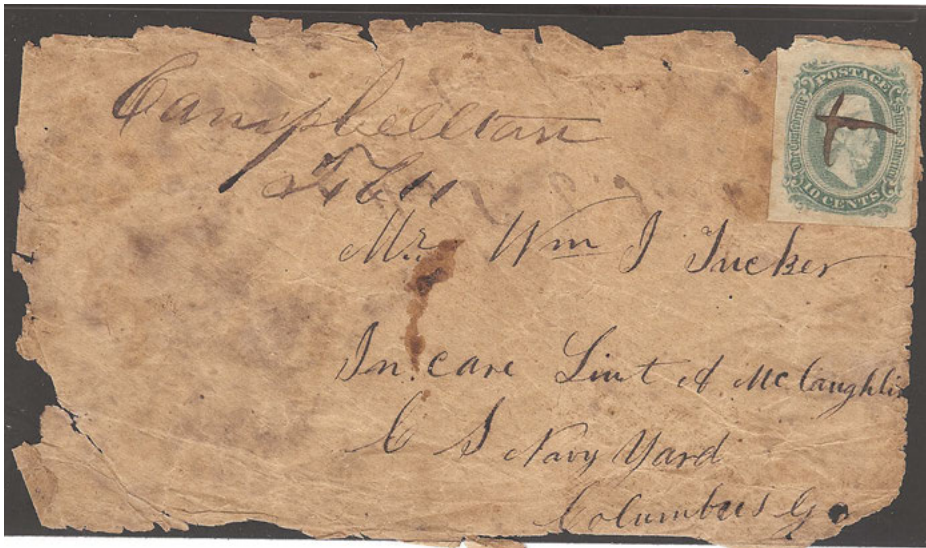 Campbellton
Feb 11
POSTAGE
The Confederate
States America
10 CENTS
Mr. Wm J Tucker
In care Lieut A McLaughlin
C S Navy Yard
Columbus Ga